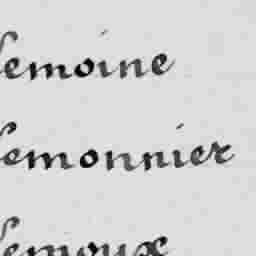 Lemoine
Lemonnier
Lemoux